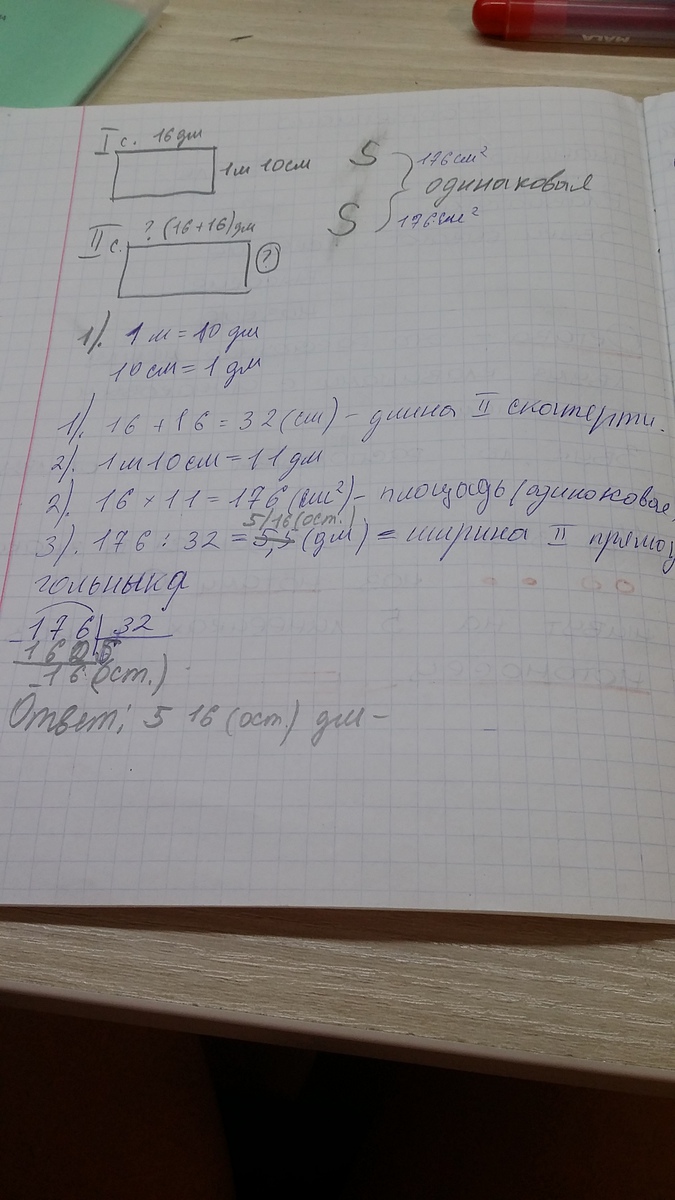 I с. 16 дм
1м 10см
S 176 см²
одинаковая
II с. ? (16+16) дм
?
S 176 см²
1). 1 м = 10 дм
10 см = 1 дм
1). 16 + 16 = 32 (см) – длина II скатерти.
2). 1 м 10 см = 11 дм
2). 16 × 11 = 176 (см²) – площадь (одиноковая,
5/16 (ост.)
3). 176 : 32 = 5,5 (дм) = ширина II прямоу
гольныка
176 32
160 5
16 (ост.)
Ответ: 5 16 (ост.) дм –